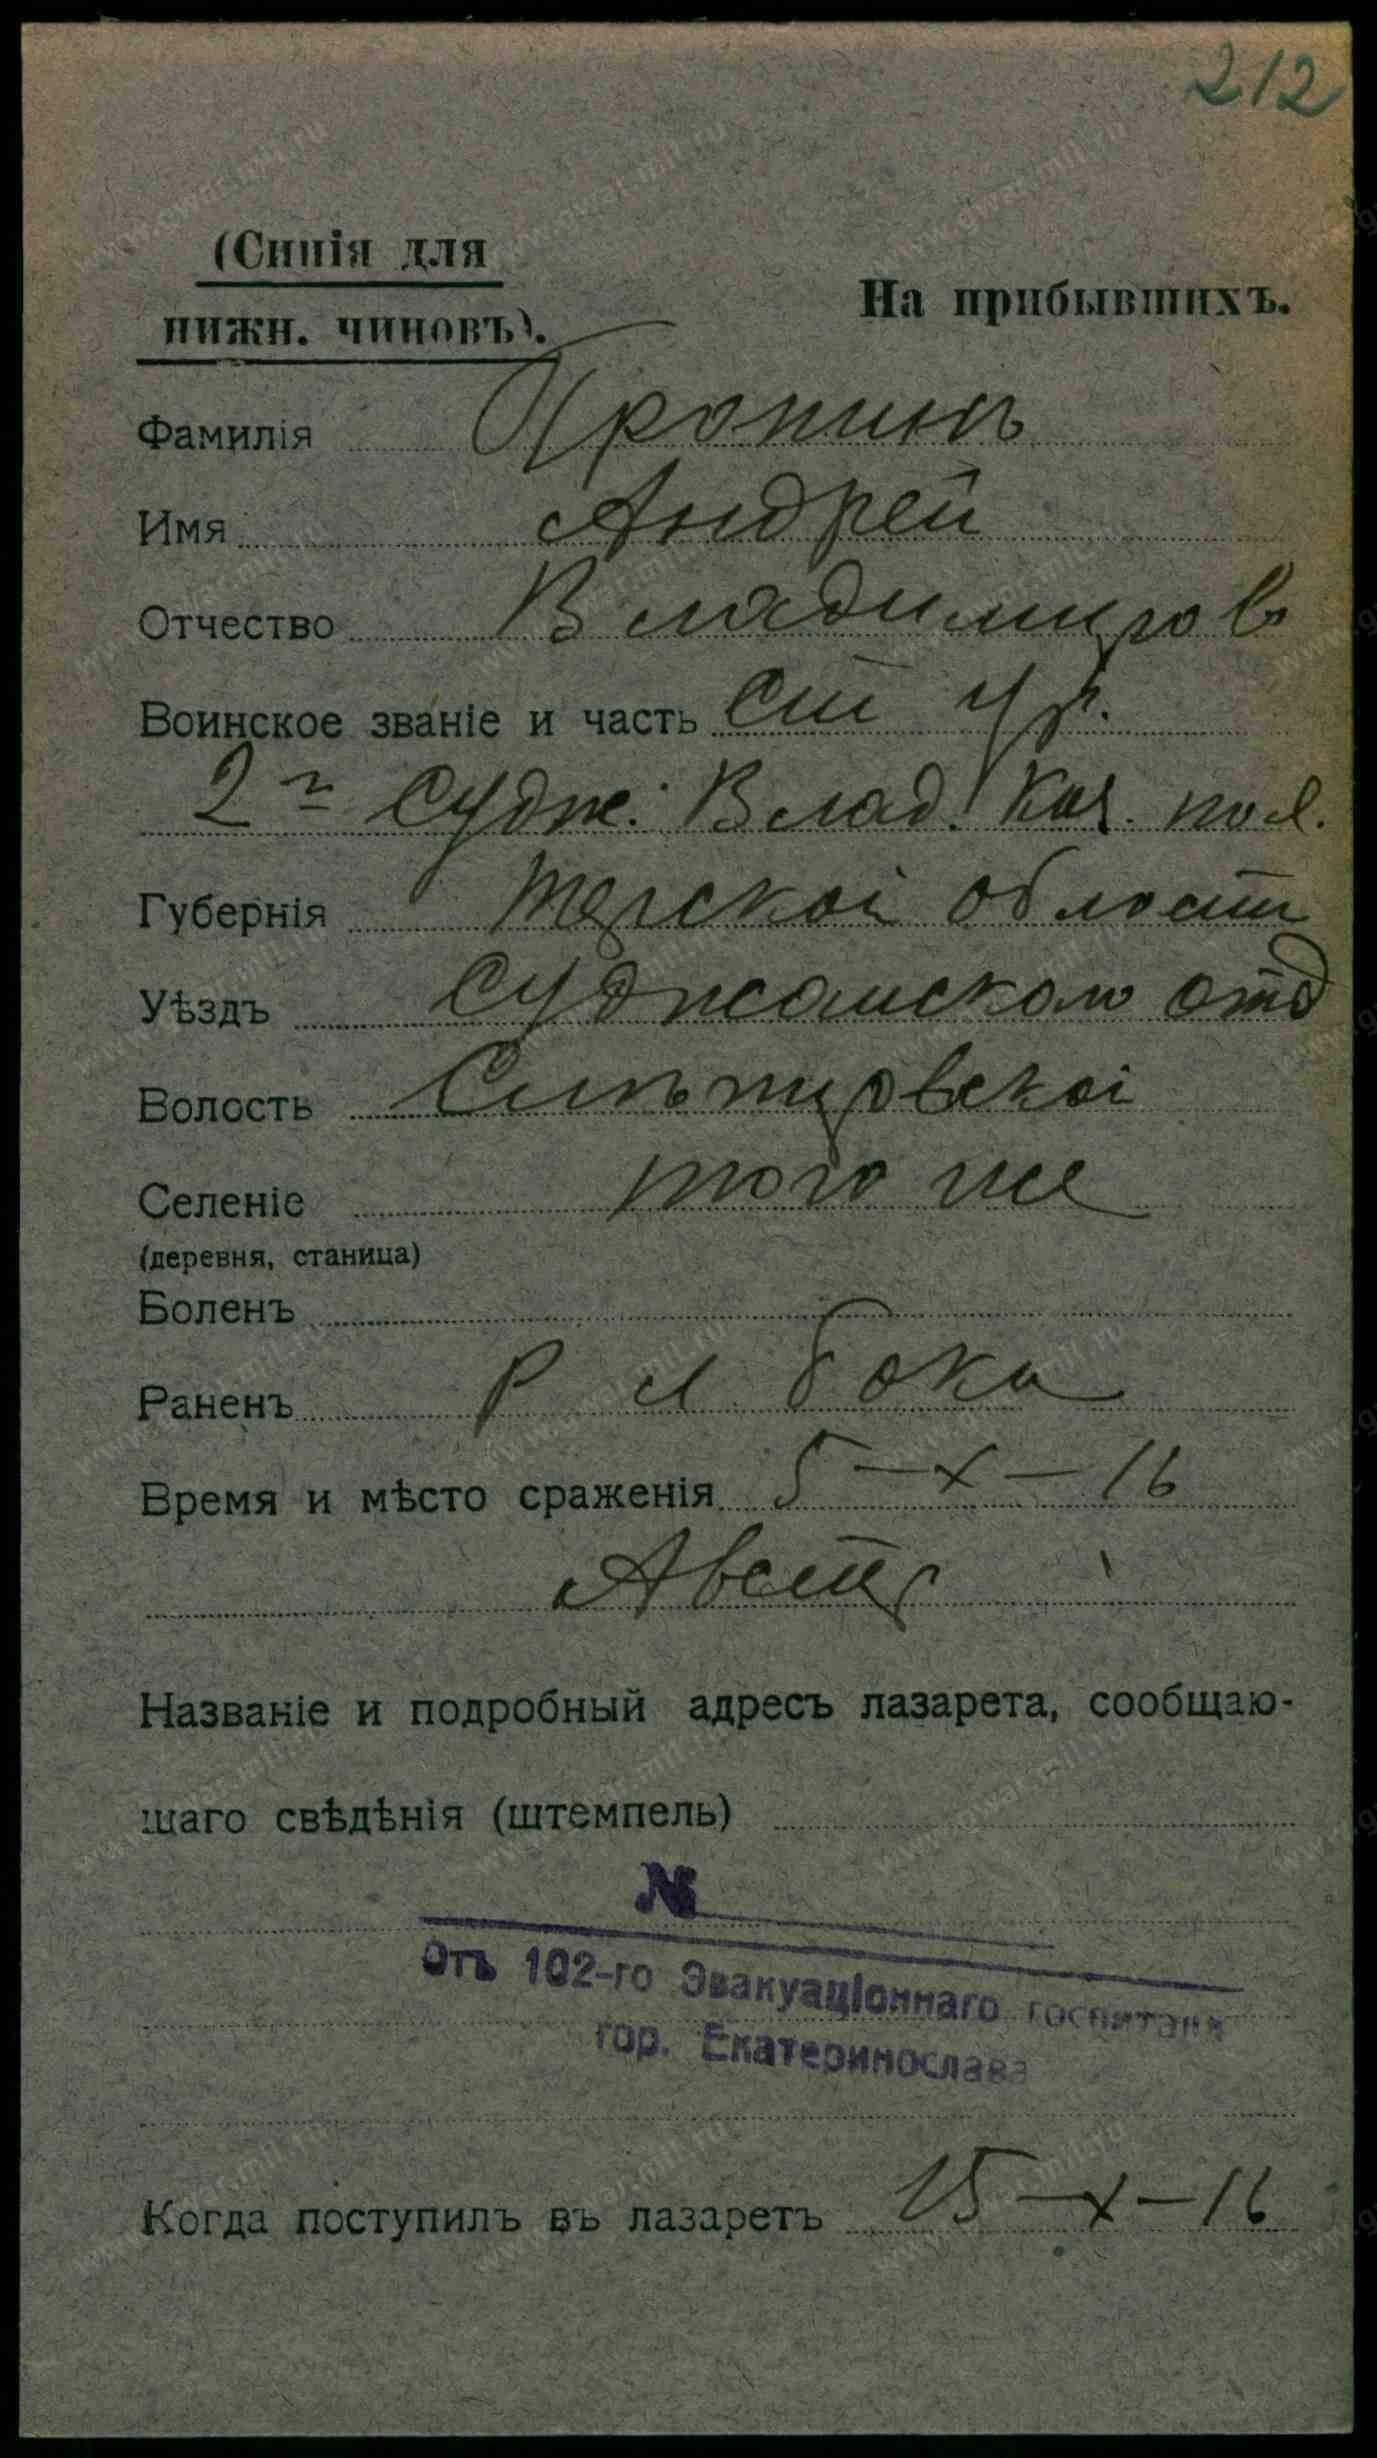 212
(Синія для
нижн. чиновъ).
На прибывшихъ.
Фамилія Пропинъ
Имя Андрей
Отчество Владимиров
Воинское званіе и часть Ст ур.
2й Судж. Влад. Каз. пол.
Губернія Терской области
Уѣздъ Суджанском отд
Волость Слѣпцовскоі
Селеніе того же
(деревня, станица)
Боленъ
Раненъ Р л бока
Время и мѣсто сраженія 5-X-16
Австр
Названіе и подробный адресъ лазарета, сообщаю-
щаго свѣдѣнія (штемпель)
№
Отъ 102-го Эвакуаціоннаго госпиталя
гор. Екатеринослава
Когда поступилъ въ лазаретъ 15-X-16